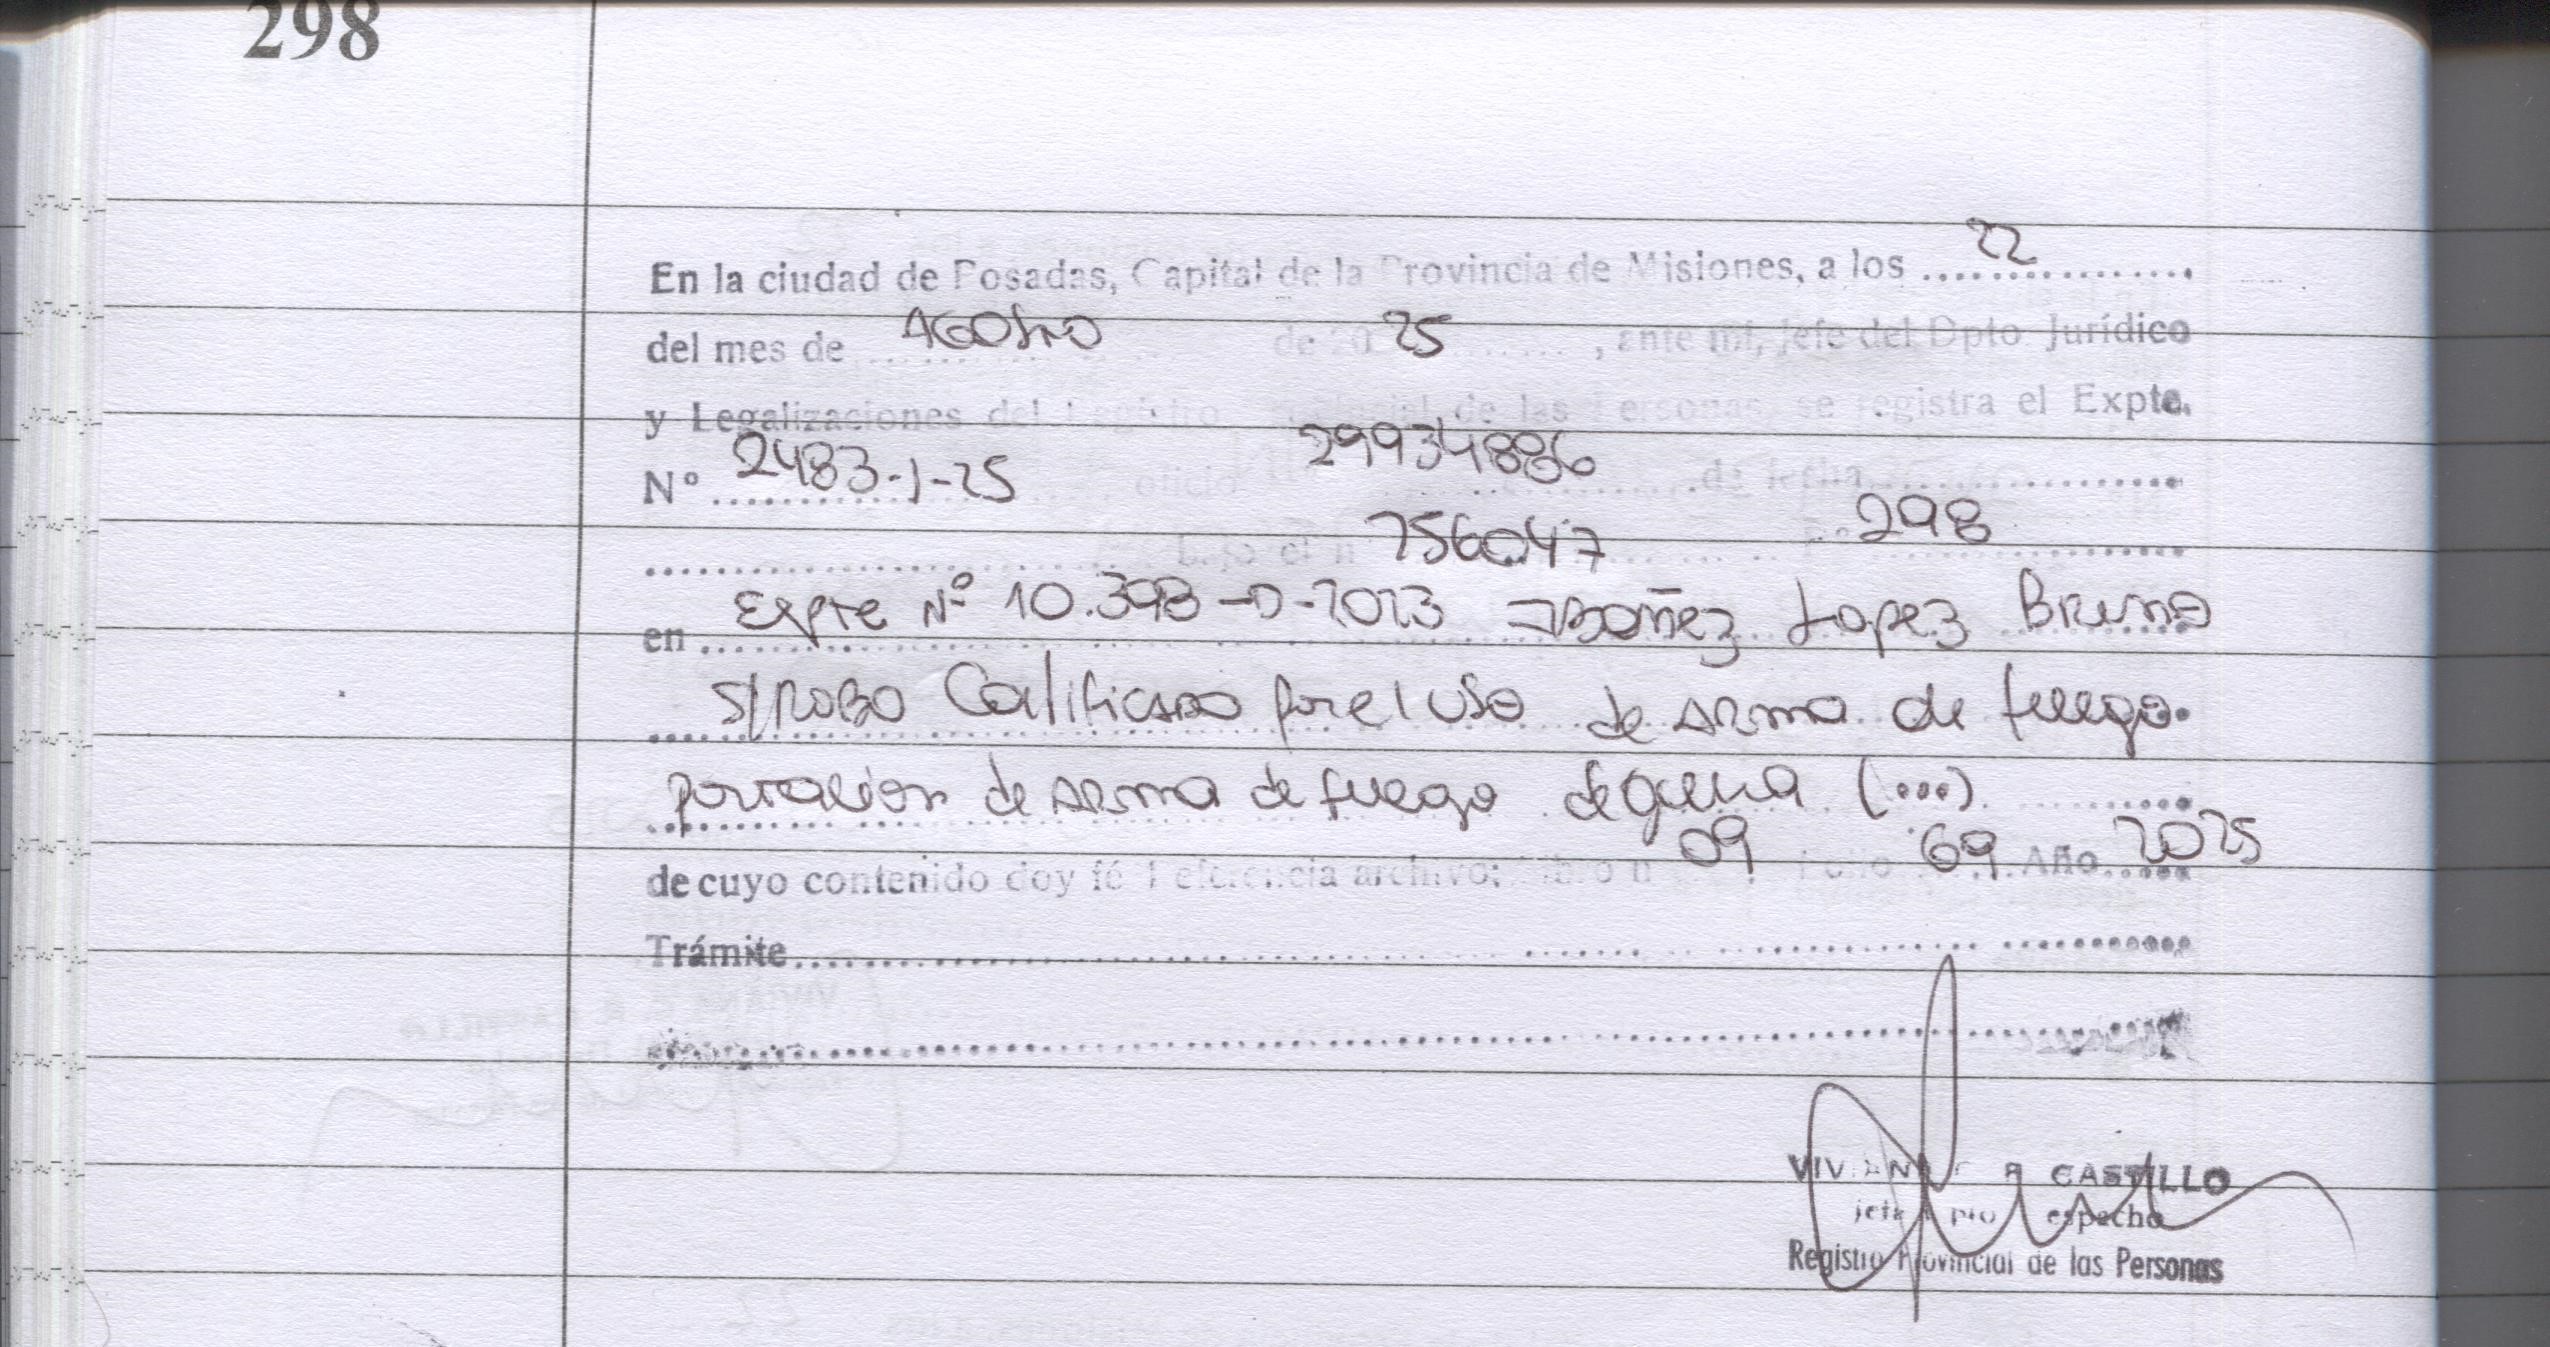 298
En la ciudad de Posadas, Capital de la Provincia de Misiones, a los 22
del mes de AGOSTO de 20 25, ante mi, Jefe del Dpto Jurídico
y Legalizaciones del Registro Provincial de las Personas, se registra el Expte.
N° 2483-J-25 oficio 299934886 de fecha
bajo el n° 756047 F° 298
en Expte N° 10.398-D-2023 Ibañez Lopez Bruno
S/ROBO Calificado por el uso de arma de fuego.
portacion de arma de fuego de guerra (...)
de cuyo contenido doy fé Referencia archivo: Libro n° 09 Folio 69 Año 2025
Trámite
VIVIANA CASTILLO
Jefe Dpto Despacho
Registro Provincial de las Personas